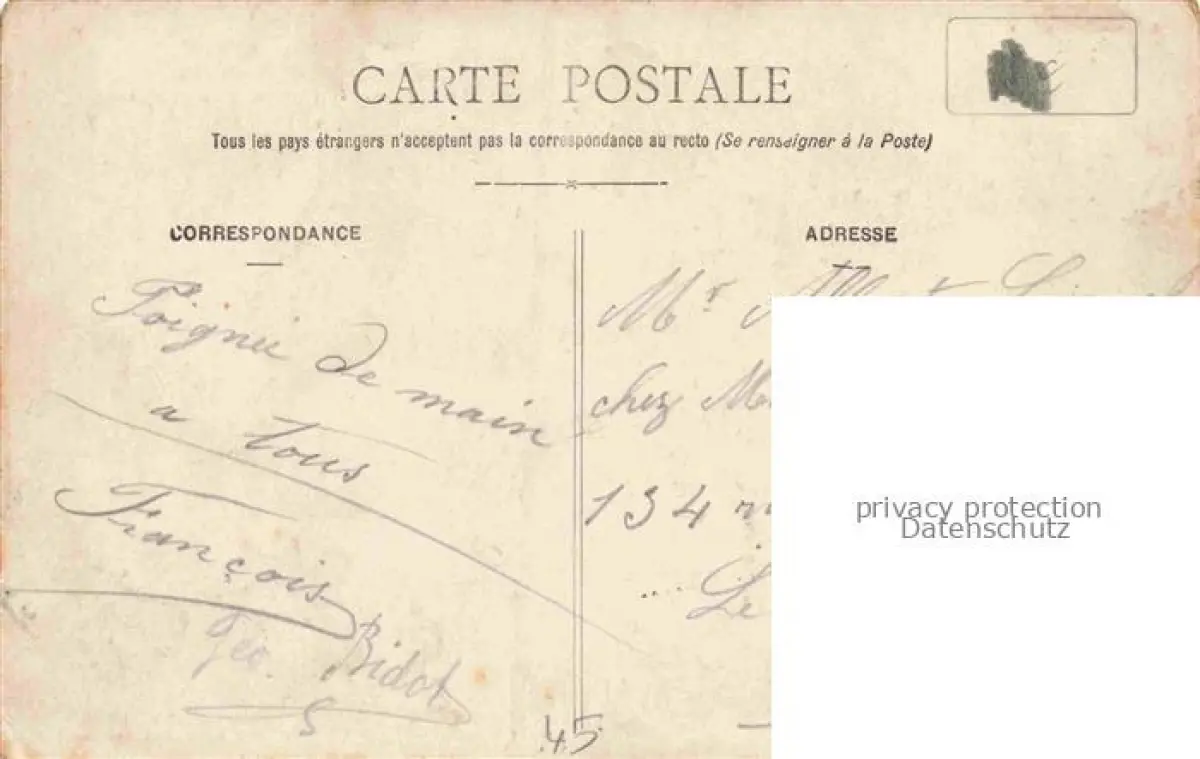 CARTE POSTALE
Tous les pays étrangers n'acceptent pas la correspondance au recto (Se renseigner à la Poste)
CORRESPONDANCE
Poignée de main
a tous
François
Geo. Bidot
45
ADRESSE
Mr
chez
134
Le
privacy protection
Datenschutz